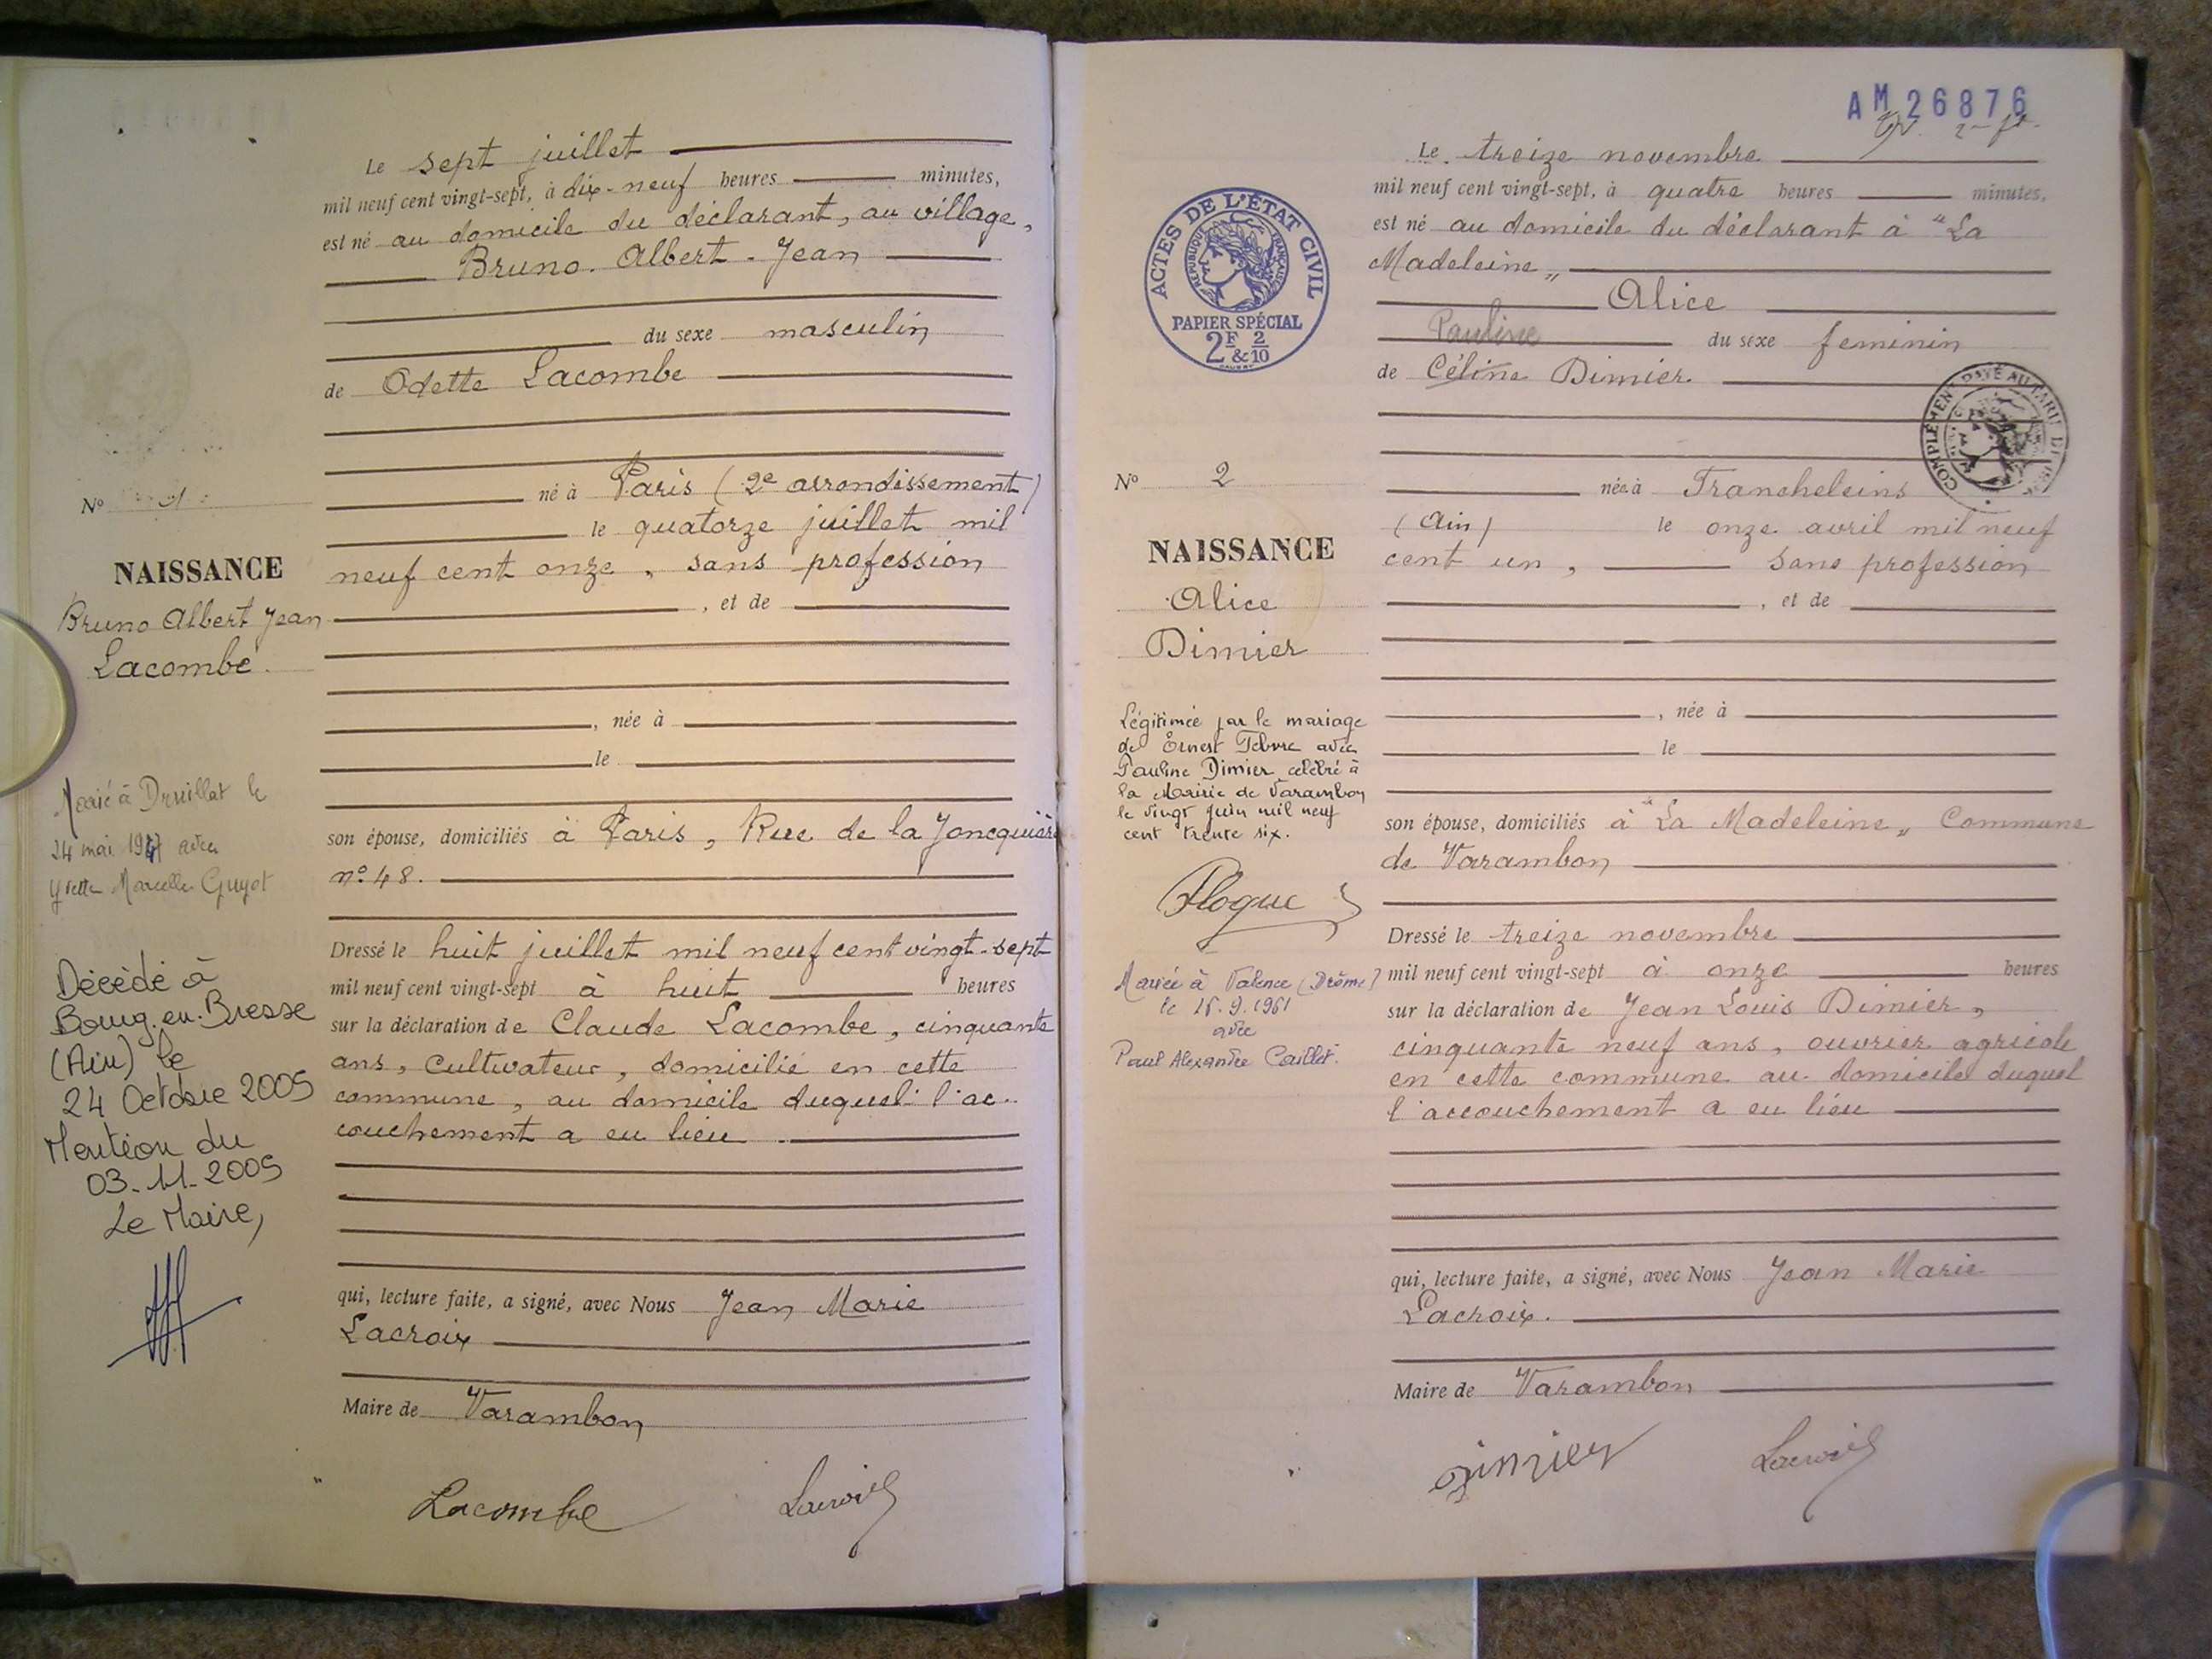 Le sept juillet
mil neuf cent vingt-sept, à dix-neuf heures minutes,
est né au domicile du déclarant, au village,
Bruno. Albert. Jean
du sexe masculin
de Odette Lacombe
né à Paris (2e arrondissement)
le quatorze juillet mil
neuf cent onze, sans profession
, et de
, née à
le
son épouse, domiciliés à Paris, Rue de la Joncquière
n° 48.
Dressé le huit juillet mil neuf cent vingt-sept
mil neuf cent vingt-sept à huit heures
sur la déclaration de Claude Lacombe, cinquante
ans, cultivateur, domicilié en cette
commune, au domicile duquel l'ac-
couchement a eu lieu
qui, lecture faite, a signé, avec Nous Jean Marie
Lacroix
Maire de Varambon
Lacombe Lacroix
N° 1
NAISSANCE
Bruno Albert Jean
Lacombe
Marié à Druillat le
24 mai 1947 avec
Yvette Marcelle Guyot
Décédé à
Bourg-en-Bresse
(Ain) le
24 Octobre 2005
Mention du
03-11-2005
Le Maire,
AM 26876
Le treize novembre
mil neuf cent vingt-sept, à quatre heures minutes,
est né au domicile du déclarant à "La
Madeleine"
Alice
Pauline du sexe feminin
de Céline Dimier
née à Francheleins
(Ain) le onze avril mil neuf
cent un, sans profession
, et de
, née à
le
son épouse, domiciliés à "La Madeleine" Commune
de Varambon
Dressé le treize novembre
mil neuf cent vingt-sept à onze heures
sur la déclaration de Jean Louis Dimier,
cinquante neuf ans, ouvrier agricole
en cette commune au domicile duquel
l'accouchement a eu lieu
qui, lecture faite, a signé, avec Nous Jean Marie
Lacroix.
Maire de Varambon
Dimier Lacroix
ACTES DE L'ÉTAT CIVIL
RÉPUBLIQUE FRANÇAISE
PAPIER SPÉCIAL
2F & 2/10
COMPLÉMENT PAYÉ AU TARIF DE
N° 2
NAISSANCE
Alice
Dimier
Légitimée par le mariage
de Ernest Febvre avec
Pauline Dimier célébré à
la Mairie de Varambon
le vingt juin mil neuf
cent trente six.
Ploque
Mariée à Valence (Drôme)
le 16.9.1961
avec
Paul Alexandre Caillet.